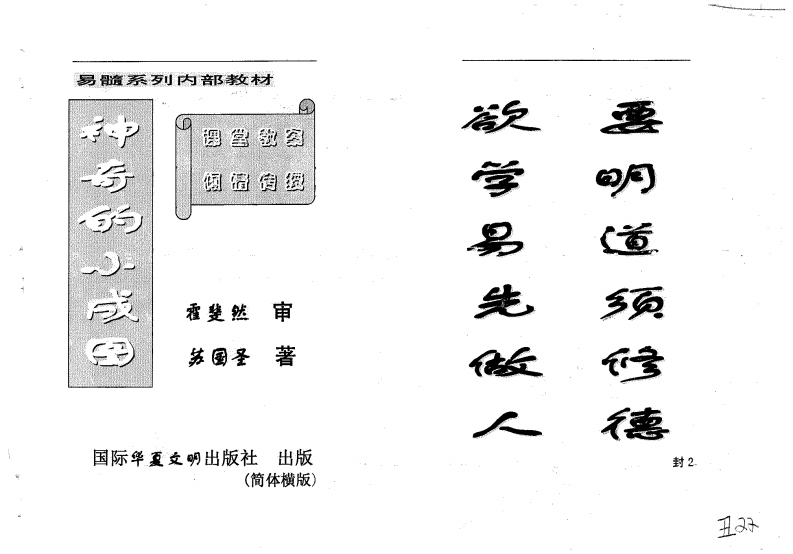 易髓系列内部教材
神奇的小成图
课堂教案
倾情传授
霍斐然 审
苏国圣 著
国际华夏文明出版社 出版
(简体横版)
欲学易先做人
要明道须修德
封2
丑22